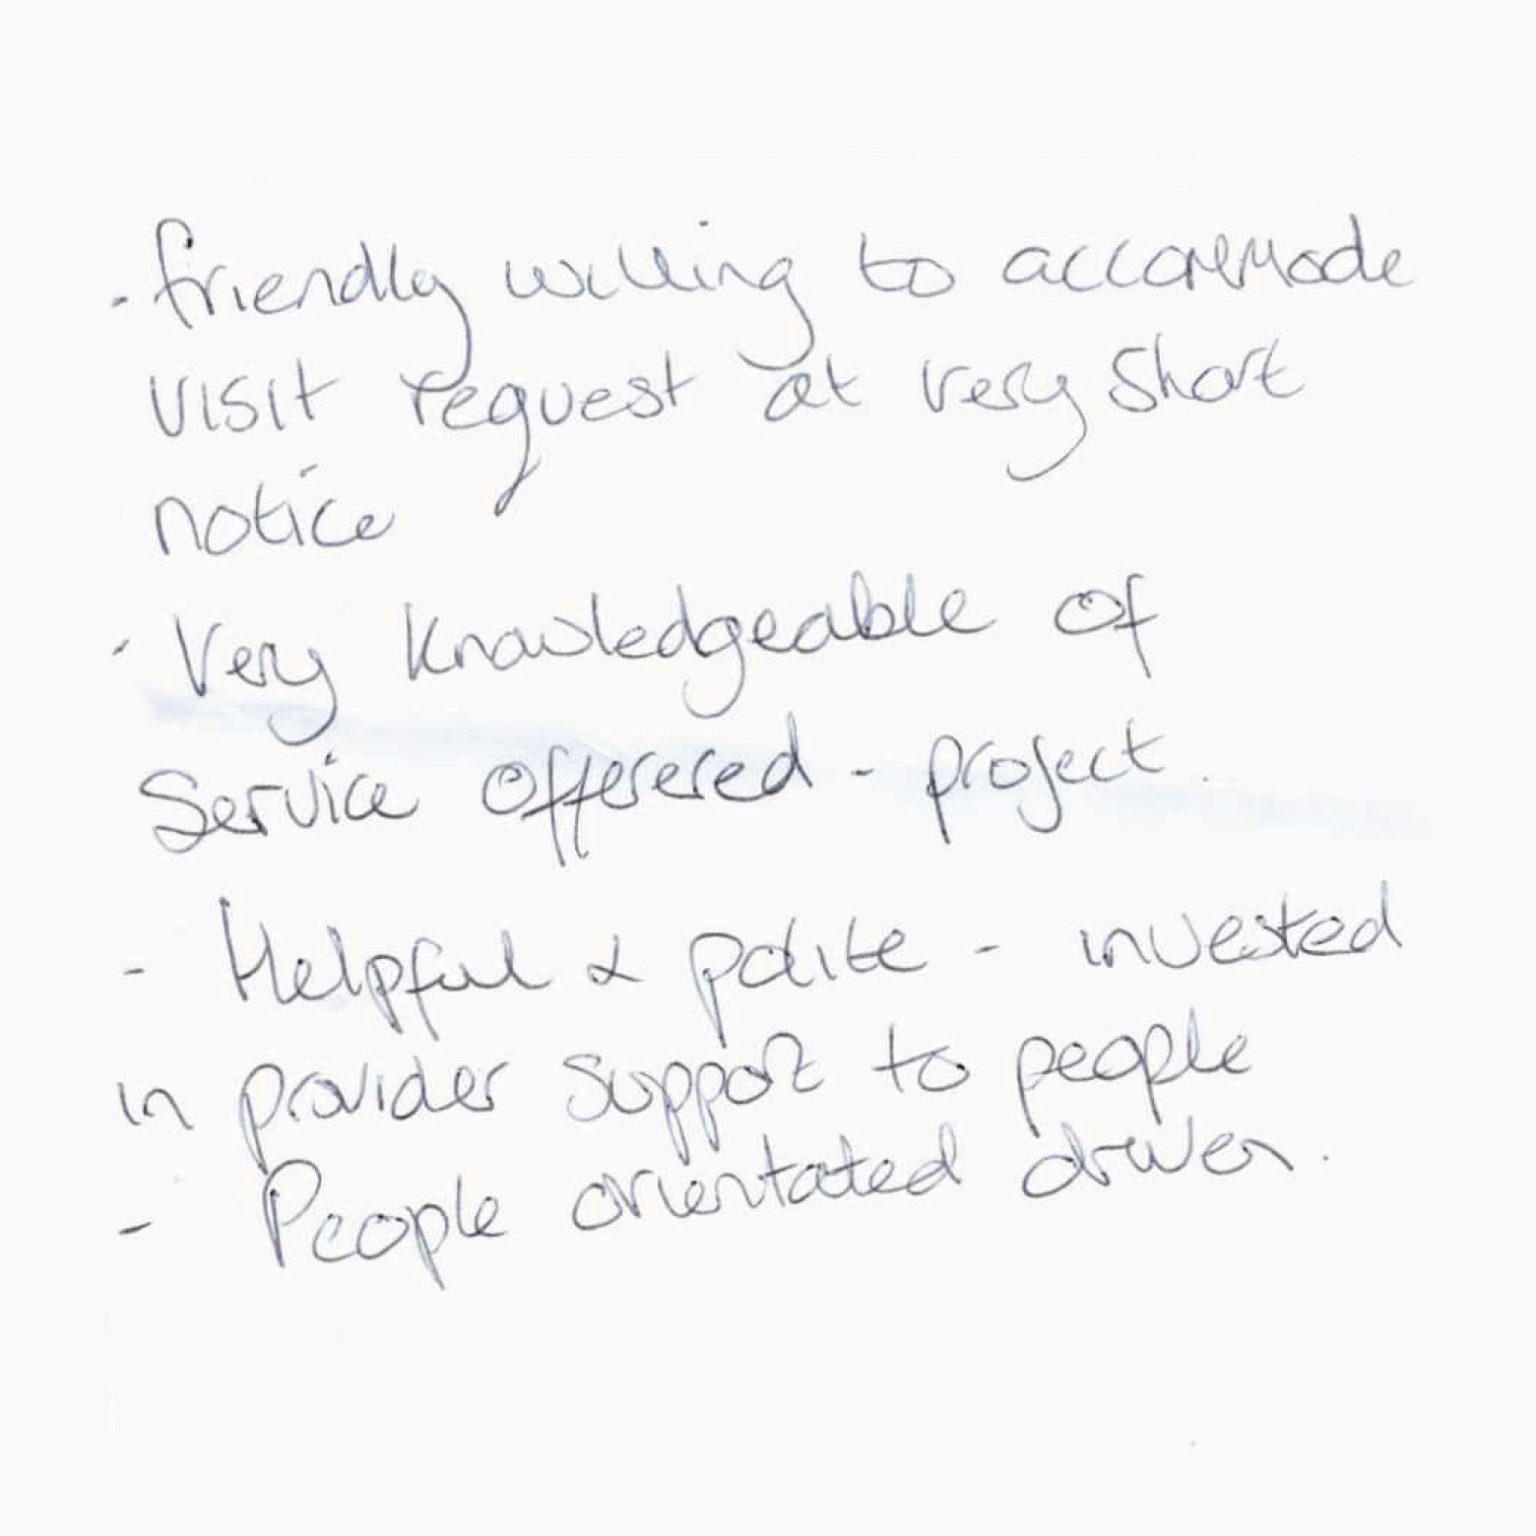 - friendly willing to accommode
visit request at very short
notice
- Very knowledgeable of
Service offerered - project.
- Helpful & polite - invested
in provider support to people
- People orientated driven.